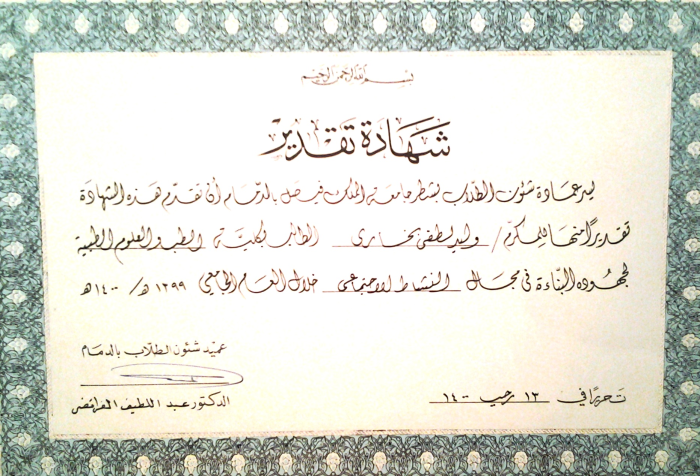 بسم الله الرحمن الرحيم
شهادة تقدير
يسر عمادة شئون الطلاب بشطر جامعة الملك فيصل بالدمام أن تقدم هذه الشهادة
تقديرًا منها للمكرم / وليد لطفي بخاري الطالب بكلية الطب والعلوم الطبية
لجهوده البناءة في مجال النشاط الاجتماعي خلال العام الجامعي ١٣٩٩ هـ / ١٤٠٠ هـ
عميد شئون الطلاب بالدمام
الدكتور عبد اللطيف
تحريرًا في ١٢ رجب ١٤٠٠